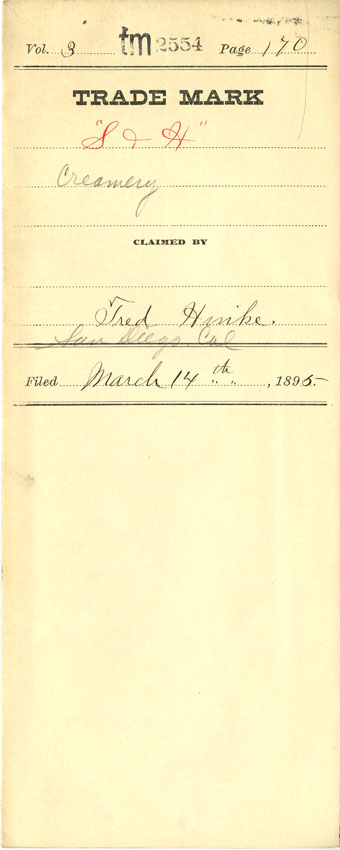 Vol. 3 tm 2554 Page 170
TRADE MARK
"S & H"
Creamery
CLAIMED BY
Fred Hinke.
San Diego, Cal
Filed March 14th " " , 1895.